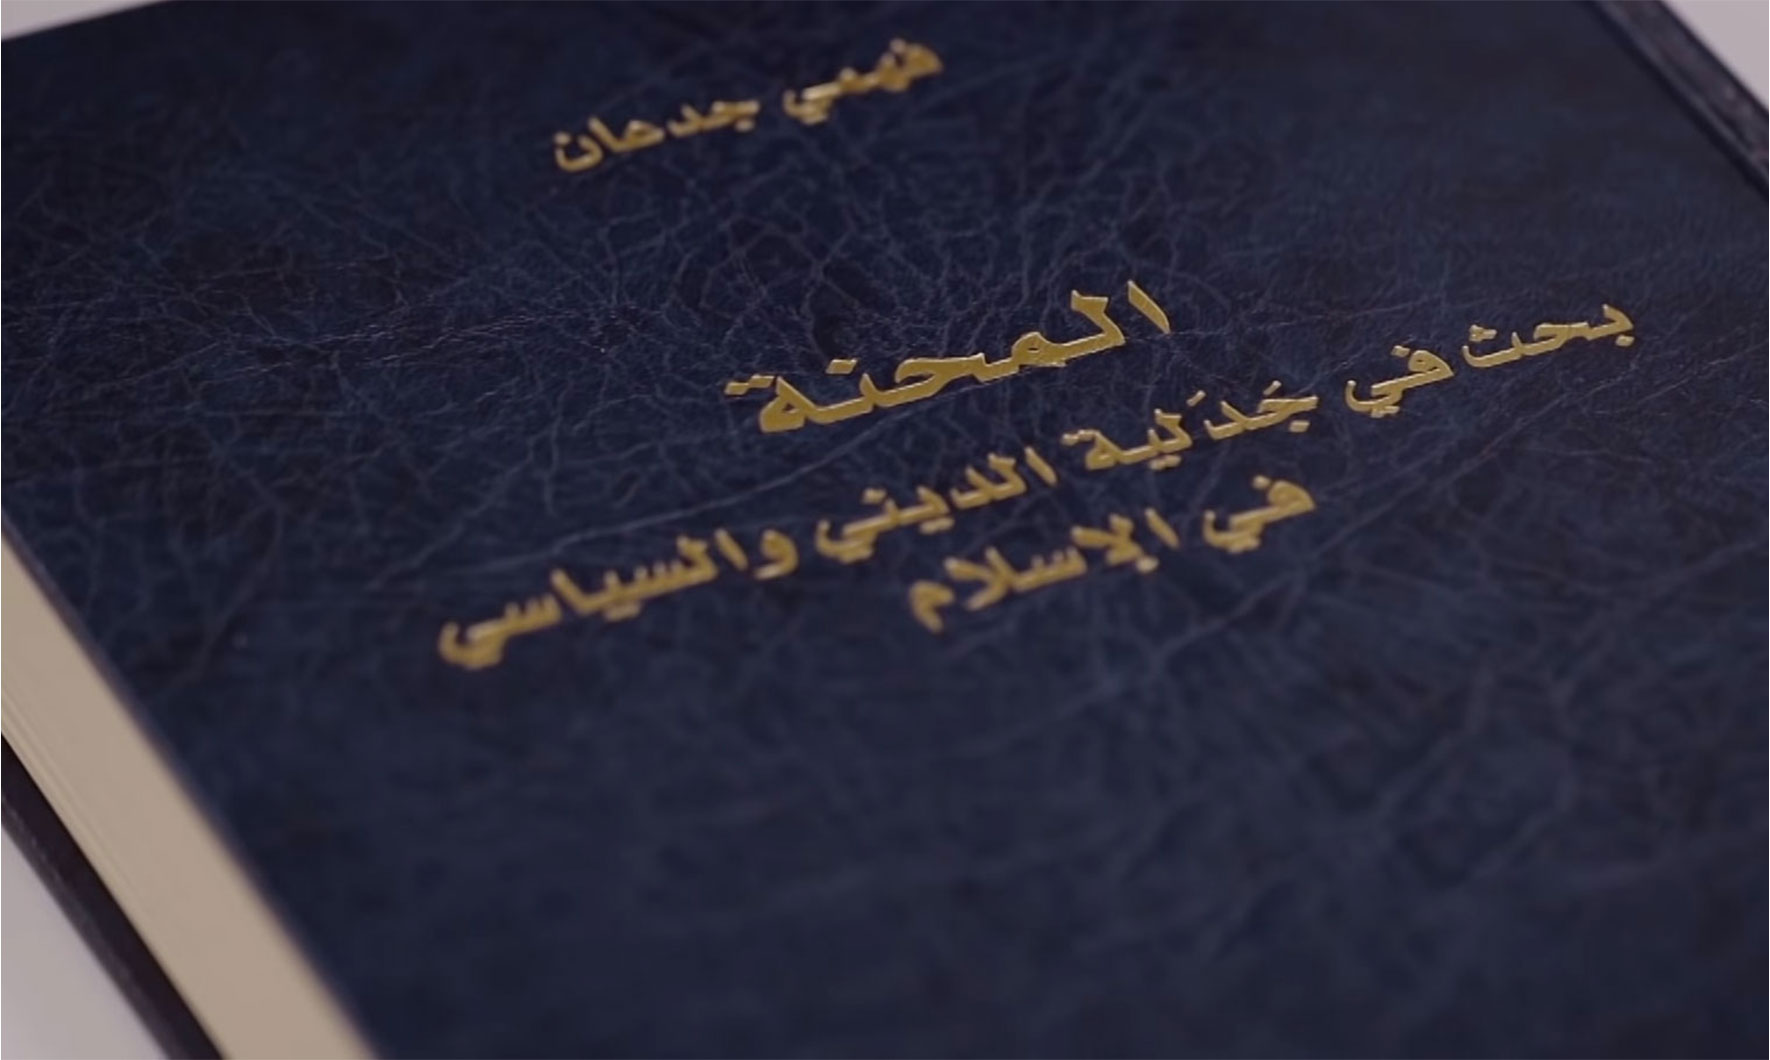 فهمي جدعان
المحنة
بحث في جَدَلية الديني والسياسي
في الإسلام